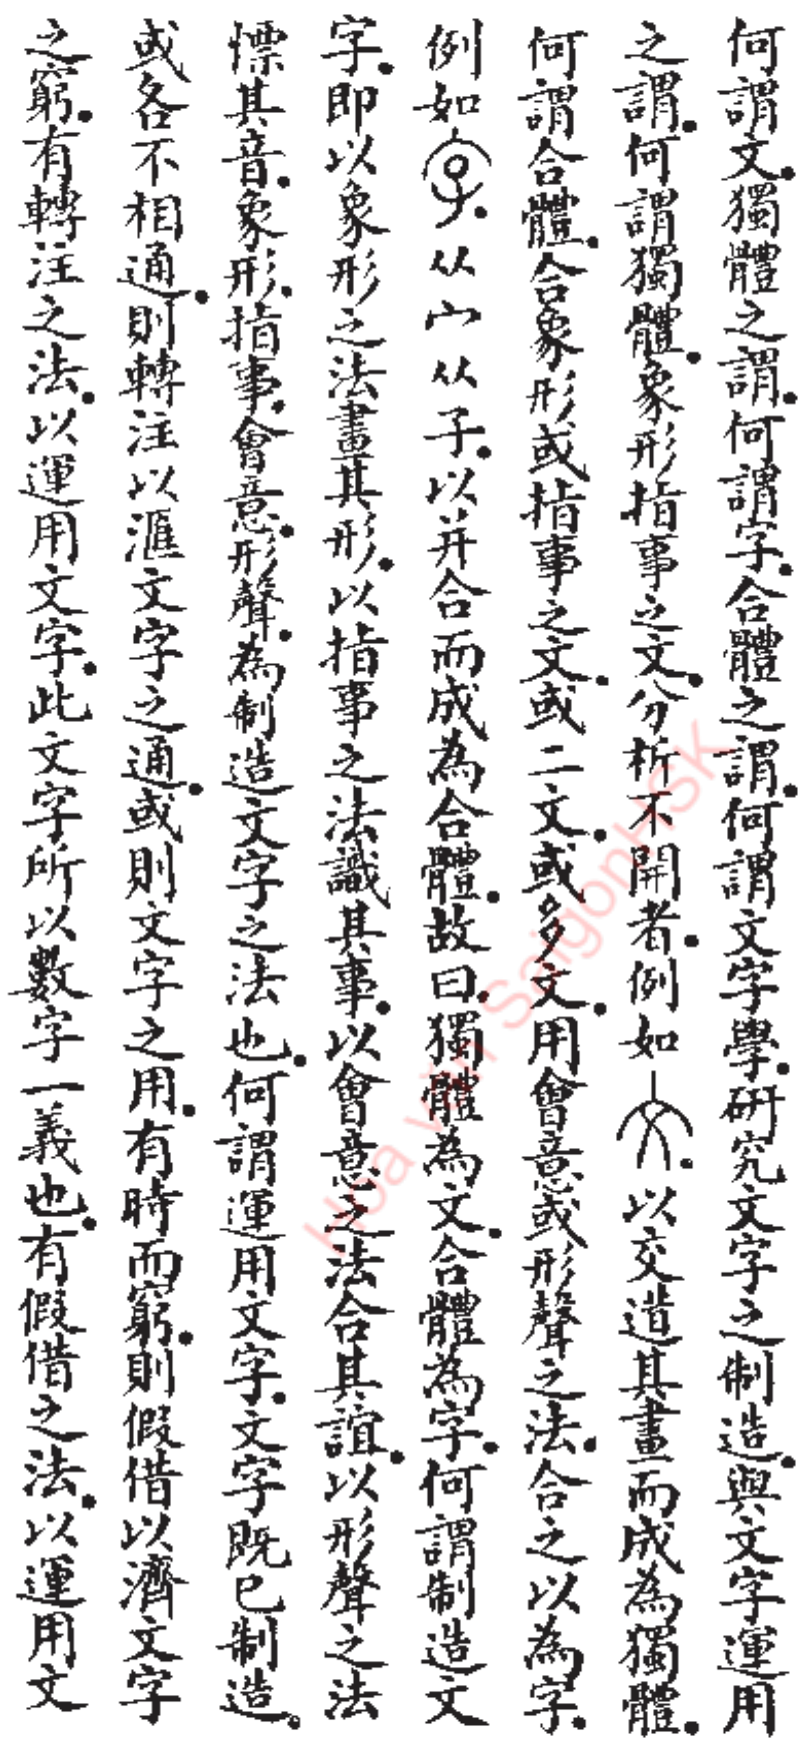 何謂文。獨體之謂。何謂字。合體之謂。何謂文字學。研究文字之制造。與文字運用
之謂。何謂獨體。象形指事之文。分析不開者。例如文。以交造其畫而成為獨體。
何謂合體。合象形或指事之文。或二文。或多文。用會意或形聲之法。合之以為字。
例如字。从宀从子。以并合而成為合體。故曰。獨體為文。合體為字。何謂制造文
字。即以象形之法畫其形。以指事之法識其事。以會意之法合其誼。以形聲之法
慓其音。象形。指事。會意。形聲。為制造文字之法也。何謂運用文字。文字既已制造。
或各不相通。則轉注以滙文字之通。或則文字之用。有時而窮。則假借以濟文字
之窮。有轉注之法。以運用文字。此文字所以數字一義也。有假借之法。以運用文
Hoa văn SaigonHSK